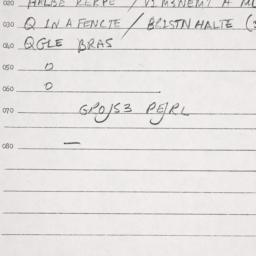 020 HALBE KERPE / VIMSNEMT A M
030 Q IN A FENCTE / BRISTN HALTE (
040 QGLE BRAS
050 D
060 O
070 GROJS3 PE/RL
080 —